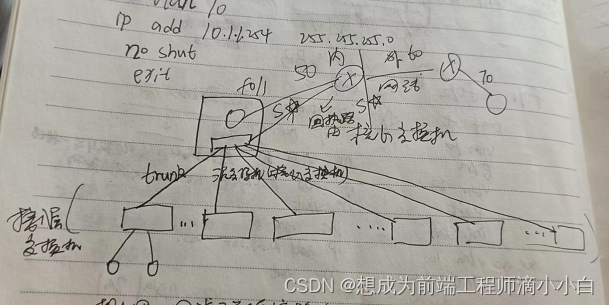 vlan 10
ip add 10.1.1.254 255.255.255.0
no shut
exit
f0/1
50
内
外 60
网
70
S*
S*
回执路由
核心交换机
trunk
汇交换机(核心交换机)
接入层
交换机
...
....
...
CSDN @想成为前端工程师滴小小白